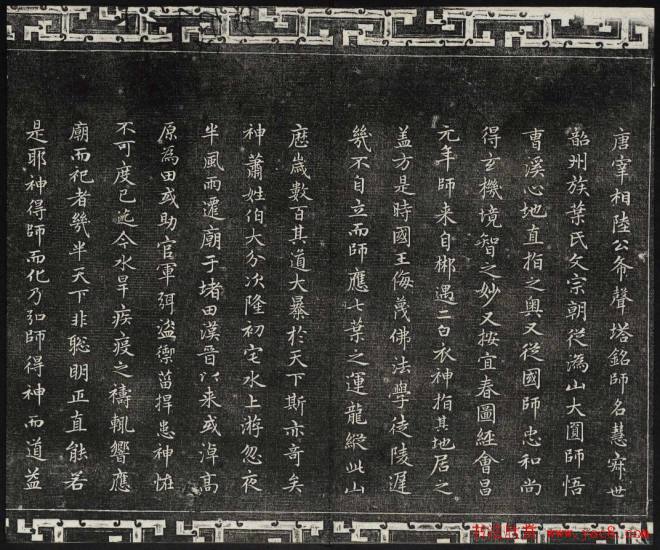 唐宰相陸公希聲塔銘師名慧寂世
韶州族葉氏文宗朝從溈山大圓師悟
曹溪心地直指之奧又從國師忠和尚
得玄機境智之妙又按宜春圖經會昌
元年師来自郴遇二白衣神指其地居之
盖方是時國王侮蔑佛法學徒陵遲
幾不自立而師應七葉之運龍縱此山
歷歲數百其道大暴於天下斯亦奇矣
神蕭姓伯大分次隆初宅水上游忽夜
半風雨遷廟于堵田漢晉以来或淖高
原為田或助官軍弭盜禦菑捍患神恠
不可度已迄今水旱疾疫之禱輒響應
廟而祀者幾半天下非聦明正直能若
是耶神得師而化乃弘師得神而道益
书法欣赏 www.yac8.com